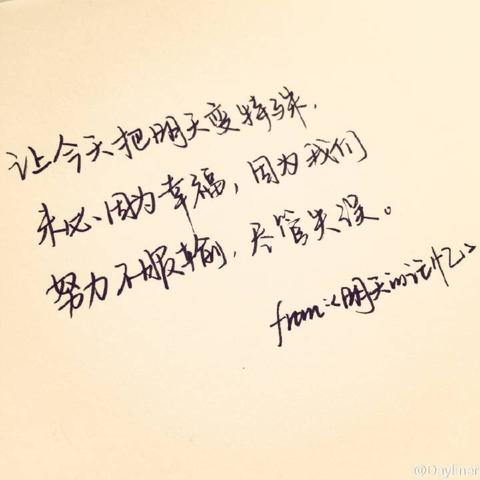 让今天把明天变特殊.
未必因为幸福，因为我们
努力不服输，尽管失误。
from:《明天的记忆》
@Dayliner